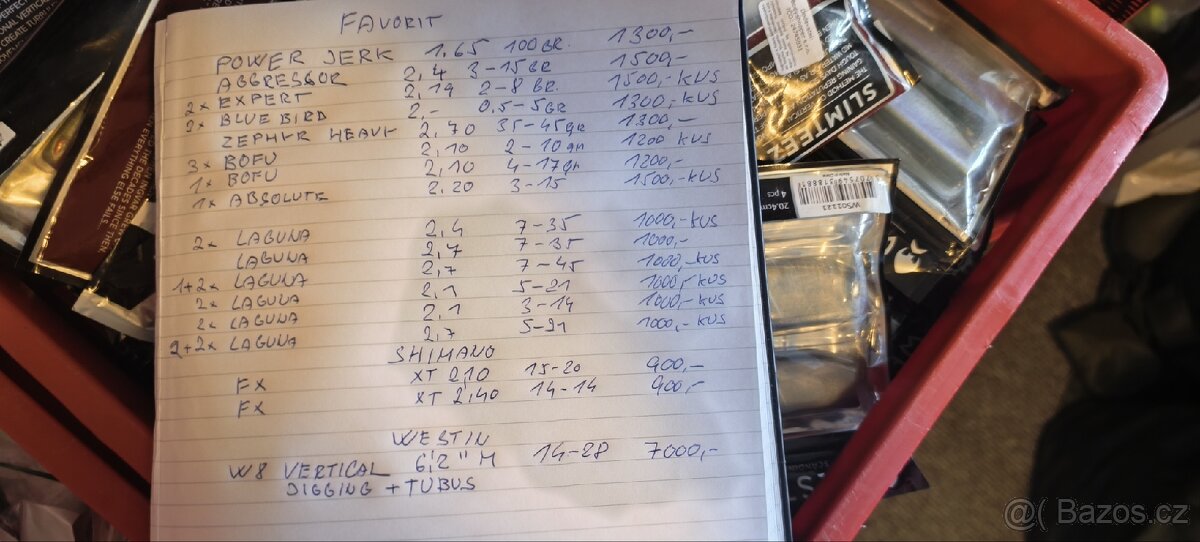 FAVORIT
POWER JERK 1,65 100GR. 1300,-
AGGRESSOR 2,4 3-15GR 1500,-
2x EXPERT 2,19 2-8 GR. 1500,-KUS
2x BLUE BIRD 2,- 0,5-5GR 1300,-KUS
ZEPHYR HEAVY 2,70 35-45gr 1300,-
3x BOFU 2,10 2-10gr 1200 KUS
1x BOFU 2,10 4-17gr 1200,-
1x ABSOLUTE 2,20 3-15 1500,-KUS
2x LAGUNA 2,4 7-35 1000,-KUS
LAGUNA 2,7 7-35 1000,-
1+2x LAGUNA 2,7 7-45 1000,-KUS
2x LAGUNA 2,1 5-21 1000,-KUS
2x LAGUNA 2,1 3-14 1000,-KUS
2+2x LAGUNA 2,7 5-21 1000,-KUS
SHIMANO
FX XT 2,10 15-20 900,-
FX XT 2,40 14-14 900,-
WESTIN
W8 VERTICAL 6'2" M 14-28 7000,-
JIGGING + TUBUS
SLIMTEEZ
THE METHOD
20.4cm
4 pcs
@( Bazos.cz